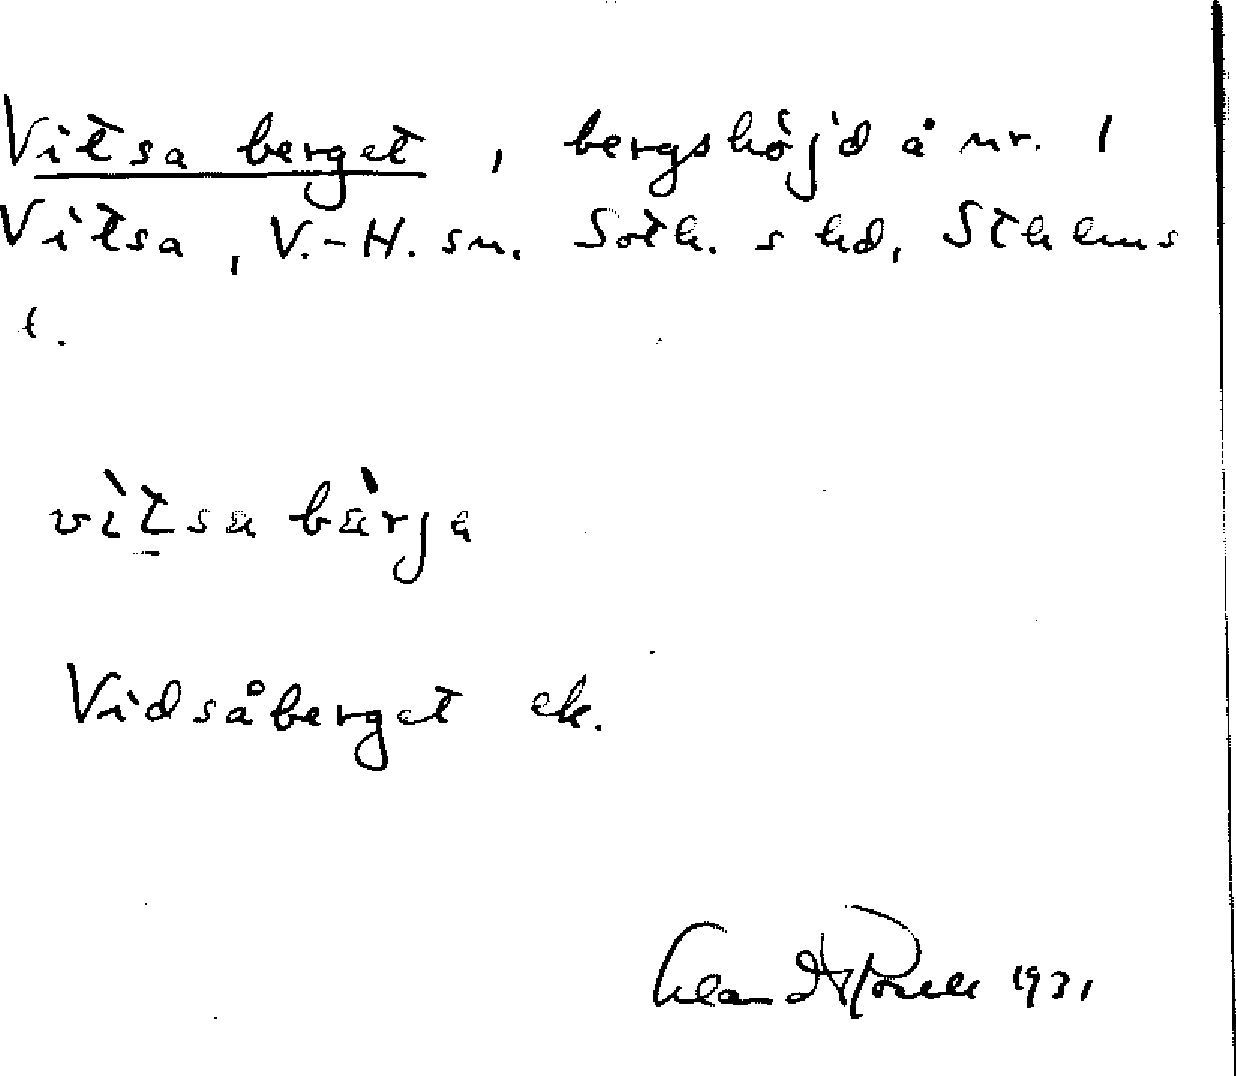 Vitsa berget, bergshöjd å nr. 1
Vitsa, V.-H. sn. Soth. s hd, Sthlms
l.
vìtsa bàrja
Vidsåberget ek.
1931